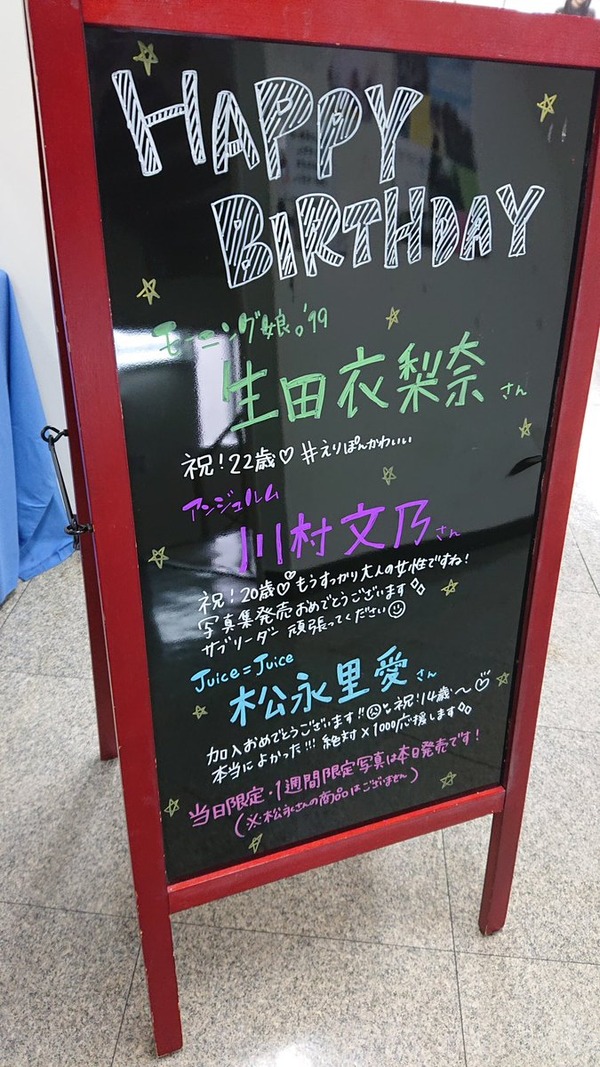 HAPPY
BIRTHDAY
モーニング娘。'19
生田衣梨奈さん
祝！22歳♡ #えりぽんかわいい
アンジュルム
川村文乃さん
祝！20歳♡もうすっかり大人の女性ですね！
写真集発売おめでとうございます
サブリーダー 頑張ってください☺
Juice=Juice
松永里愛さん
加入おめでとうございます!!☹祝！14歳〜♡
本当によかった!!! 絶対×1000応援します
当日限定・1週間限定写真は本日発売です！
(※松永さんの商品はございません)